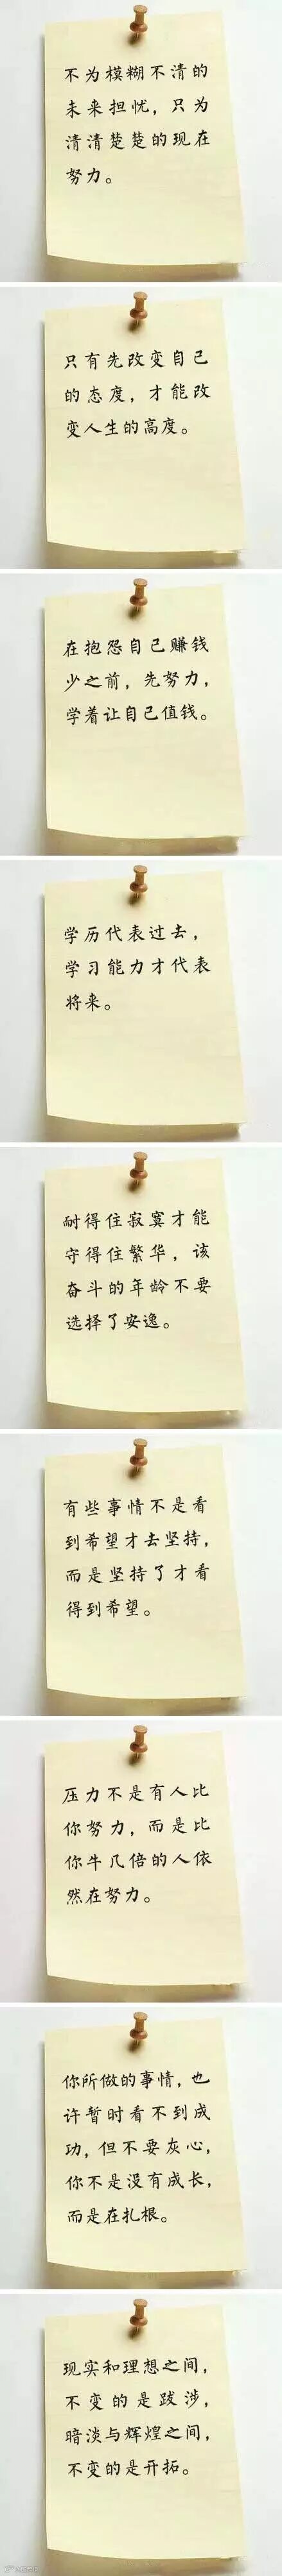 不为模糊不清的
未来担忧，只为
清清楚楚的现在
努力。
只有先改变自己
的态度，才能改
变人生的高度。
在抱怨自己赚钱
少之前，先努力，
学着让自己值钱。
学历代表过去，
学习能力才代表
将来。
耐得住寂寞才能
守得住繁华，该
奋斗的年龄不要
选择了安逸。
有些事情不是看
到希望才去坚持，
而是坚持了才看
得到希望。
压力不是有人比
你努力，而是比
你牛几倍的人依
然在努力。
你所做的事情，也
许暂时看不到成
功，但不要灰心，
你不是没有成长，
而是在扎根。
现实和理想之间，
不变的是跋涉，
暗淡与辉煌之间，
不变的是开拓。